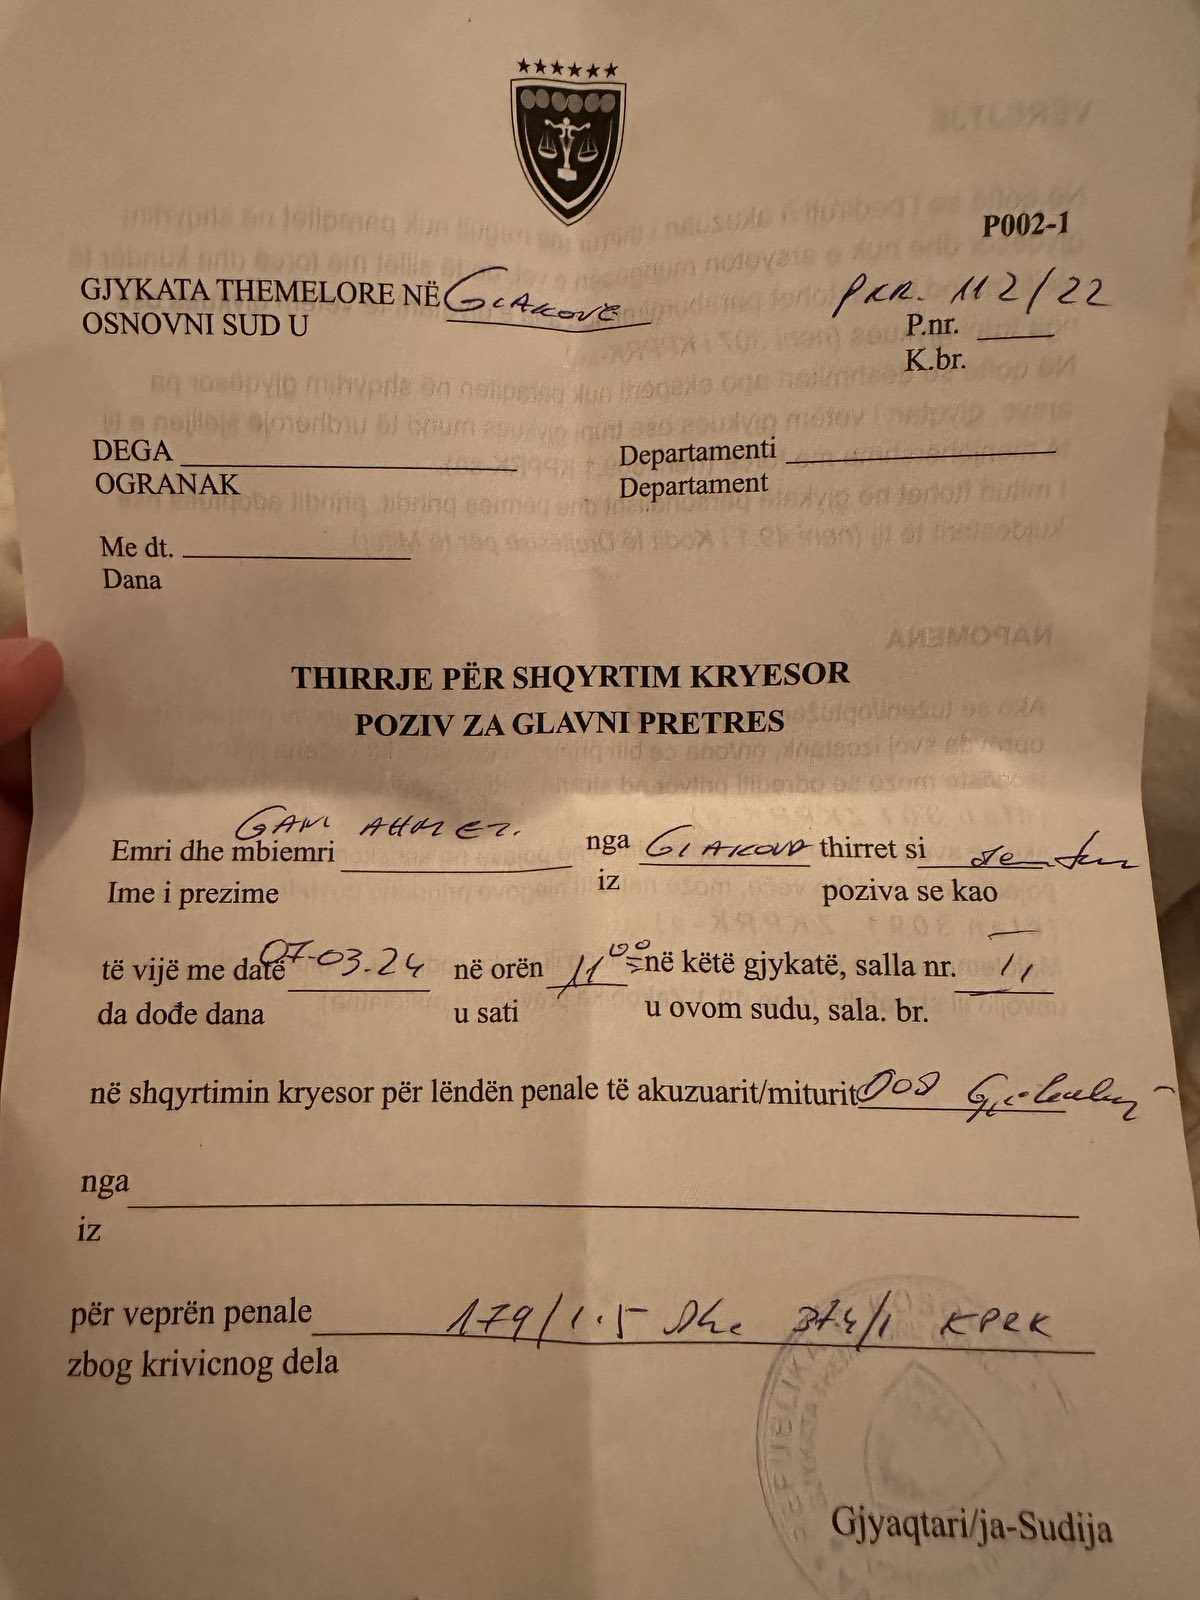 P002-1
GJYKATA THEMELORE NË GJAKOVË PKR. 112/22
OSNOVNI SUD U P.nr.
K.br.
DEGA Departamenti
OGRANAK Departament
Me dt.
Dana
THIRRJE PËR SHQYRTIM KRYESOR
POZIV ZA GLAVNI PRETRES
Emri dhe mbiemri GANI AHMET. nga GJAKOVA thirret si
Ime i prezime iz poziva se kao
të vijë me datë 07-03.24 në orën 11 00 në këtë gjykatë, salla nr. II
da dođe dana u sati u ovom sudu, sala. br.
në shqyrtimin kryesor për lëndën penale të akuzuarit/miturit
nga
iz
për veprën penale 179/1.5 dhe 374/1 KPRK
zbog krivicnog dela
Gjyaqtari/ja-Sudija